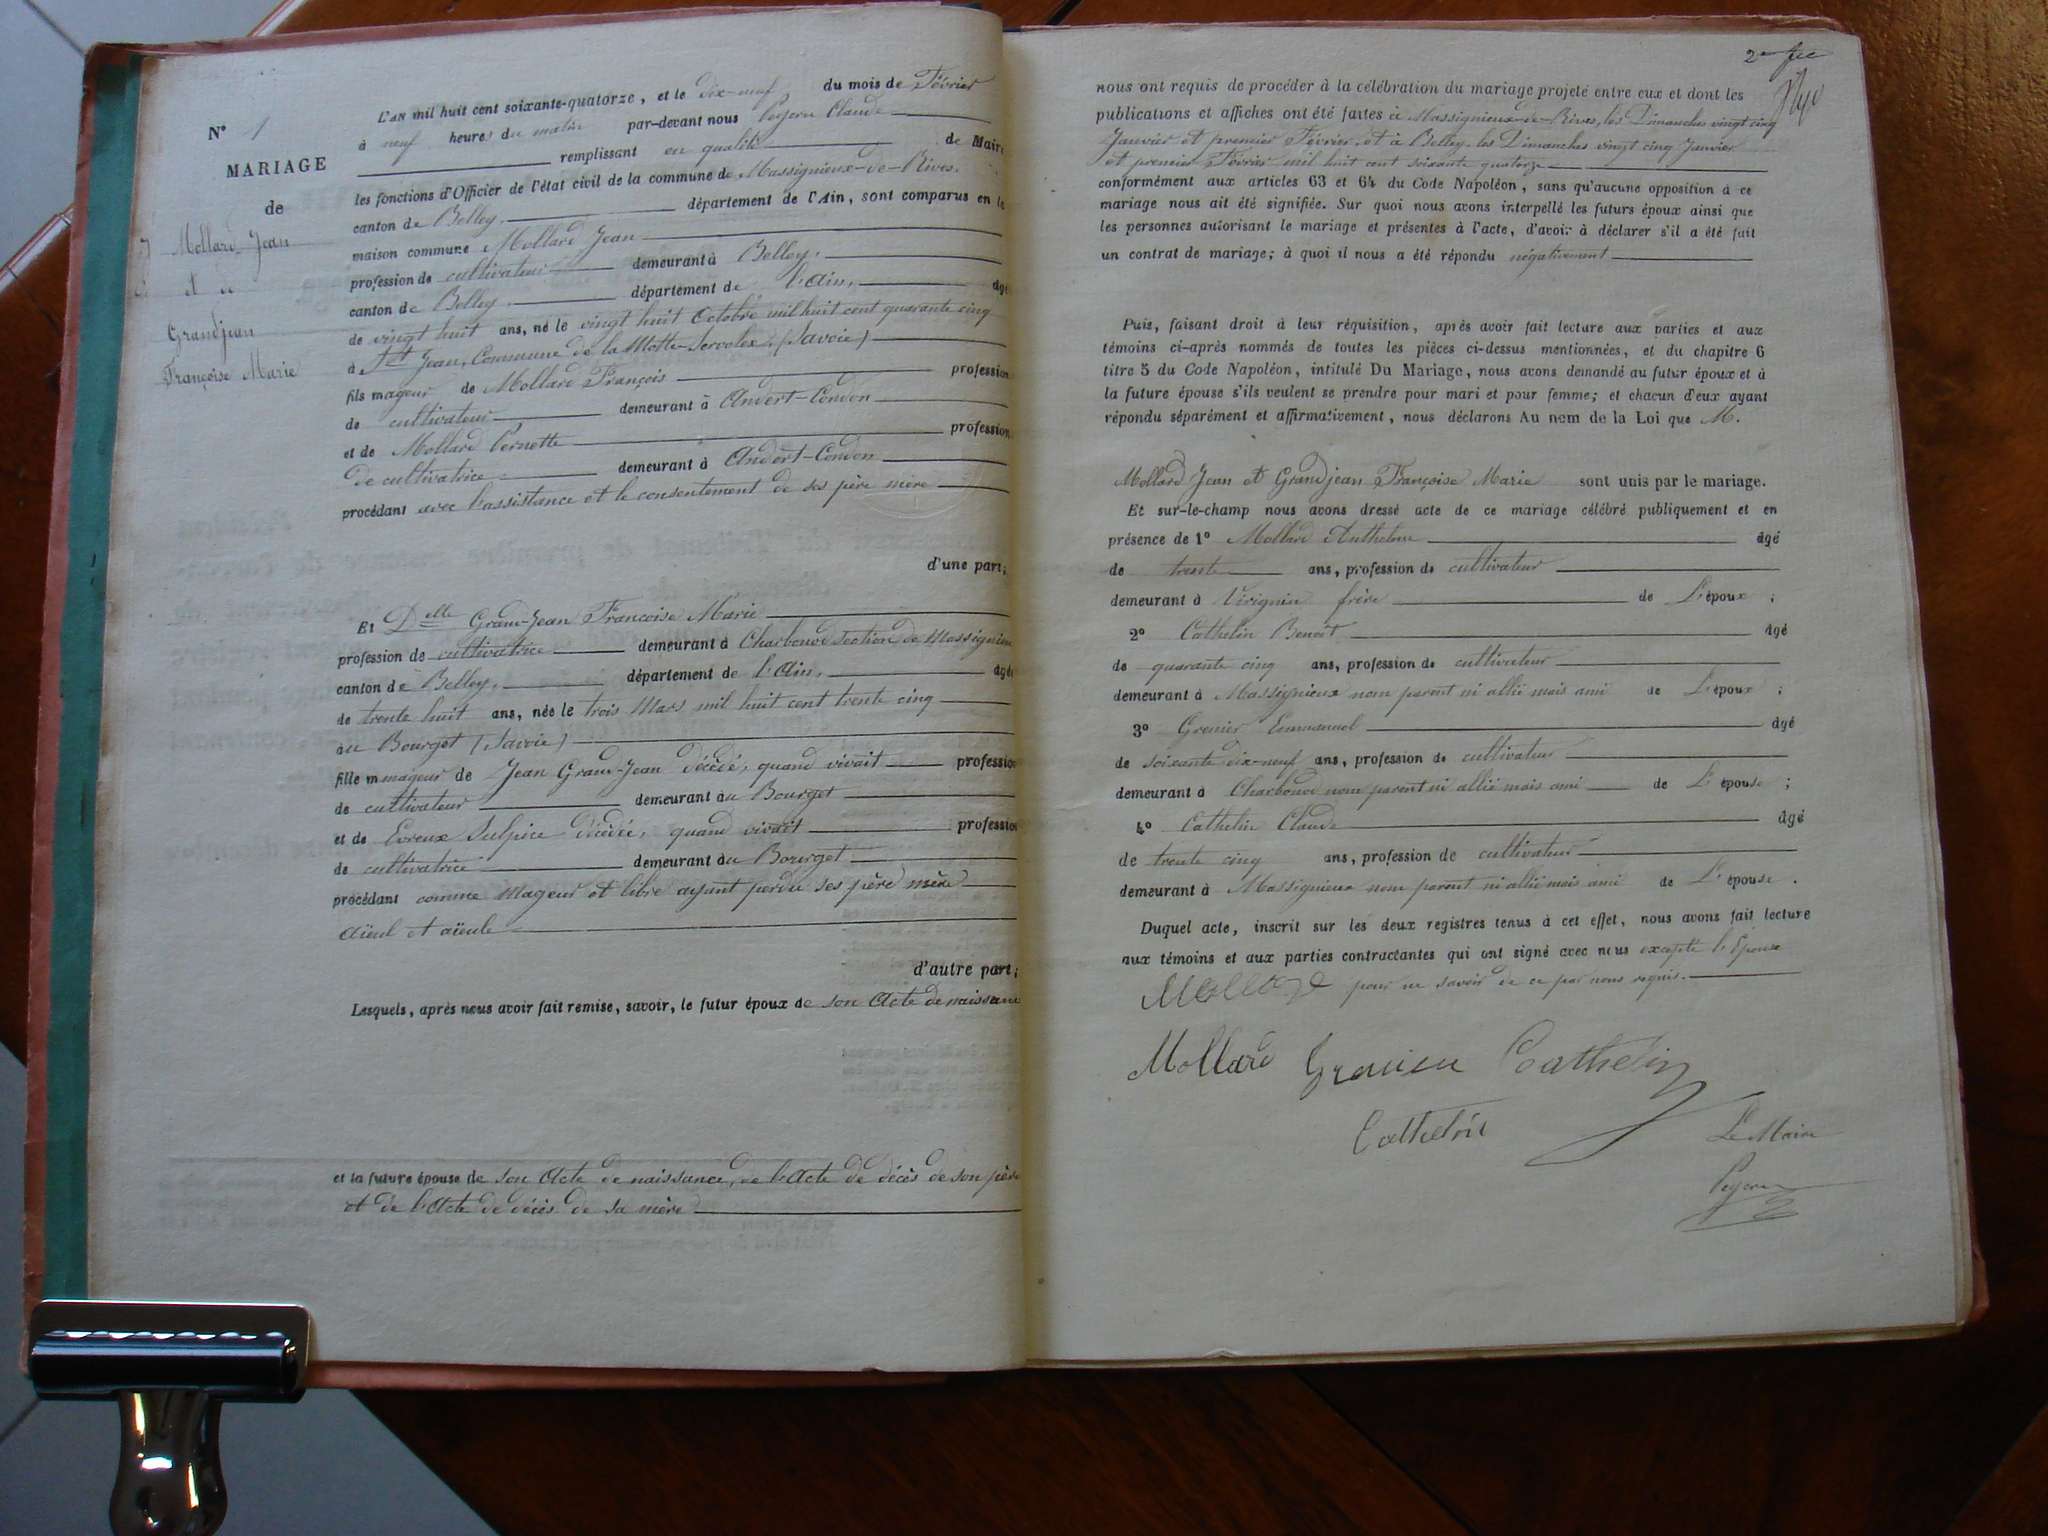 N° 1
MARIAGE
de
Mollard Jean
et de
Grandjean
Françoise Marie
L'AN mil huit cent soixante-quatorze, et le dix-neuf, du mois de Février
à neuf heures du matin par-devant nous Peysson Claude
remplissant en qualité de Maire
les fonctions d'Officier de l'état civil de la commune de Massignieux-de-Rives.
canton de Belley. département de l'Ain, sont comparus en la
maison commune Mollard Jean
profession de cultivateur demeurant à Belley,
canton de Belley. département de l'Ain, âgé
de vingt huit ans, né le vingt huit Octobre mil huit cent quarante cinq
à St Jean, Commune de la Motte-Servolex, (Savoie)
fils mageur de Mollard François profession
de cultivateur demeurant à Andert-Condon
et de Mollard Pernette profession
de cultivatrice demeurant à Andert-Condon
procédant avec l'assistance et le consentement de ses père mère
d'une part;
Et Delle Grand-Jean Francoise Marie
profession de cultivatrice demeurant à Charbonod section de Massignieu
canton de Belley, département de l'Ain, âgée
de trente huit ans, née le trois Mars mil huit cent trente cinq
au Bourget (Savoie)
fille mmageur de Jean Grand-Jean décédé, quand vivait profession
de cultivateur demeurant au Bourget
et de Evreux Sulpice décédée, quand vivait profession
de cultivatrice demeurant au Bourget
procédant comme mageur et libre ayant perdu ses père mère
aïeul et aïeule
d'autre part;
Lesquels, après nous avoir fait remise, savoir, le futur époux de son Acte de naissance
et la future épouse de son Acte de naissance, de l'Acte de décès de son père
et de l'Acte de décès de sa mère
nous ont requis de procéder à la célébration du mariage projeté entre eux et dont les
publications et affiches ont été faites à Massignieux-de-Rives, les Dimanches vingt cinq
Janvier et premier Février, et à Belley les Dimanches vingt cinq Janvier
et premier Février mil huit cent soixante quatorze
conformément aux articles 63 et 64 du Code Napoléon, sans qu'aucune opposition à ce
mariage nous ait été signifiée. Sur quoi nous avons interpellé les futurs époux ainsi que
les personnes autorisant le mariage et présentes à l'acte, d'avoir à déclarer s'il a été fait
un contrat de mariage; à quoi il nous a été répondu négativement
Puis, faisant droit à leur réquisition, après avoir fait lecture aux parties et aux
témoins ci-après nommés de toutes les pièces ci-dessus mentionnées, et du chapitre 6
titre 5 du Code Napoléon, intitulé Du Mariage, nous avons demandé au futur époux et à
la future épouse s'ils veulent se prendre pour mari et pour femme; et chacun d'eux ayant
répondu séparément et affirmativement, nous déclarons Au nom de la Loi que M.
Mollard Jean et Grandjean Françoise Marie sont unis par le mariage.
Et sur-le-champ nous avons dressé acte de ce mariage célébré publiquement et en
présence de 1° Mollard Anthelme âgé
de trente ans, profession de cultivateur
demeurant à Virignin frère de L'époux ;
2° Cathelin Benoît âgé
de quarante cinq ans, profession de cultivateur
demeurant à Massignieux nom parent ni allié mais ami de L'époux ;
3° Grenier Emmanuel âgé
de soixante dix-neuf ans, profession de cultivateur
demeurant à Charbonod nom parent ni allié mais ami de L'épouse ;
4° Cathelin Claude âgé
de trente cinq ans, profession de cultivateur
demeurant à Massignieux nom parent ni allié mais ami de L'épouse.
Duquel acte, inscrit sur les deux registres tenus à cet effet, nous avons fait lecture
aux témoins et aux parties contractantes qui ont signé avec nous excepté l'Epouse
Mollard pour ne savoir de ce par nous requis.
Mollard Cathelin
Cathelin
Le Maire